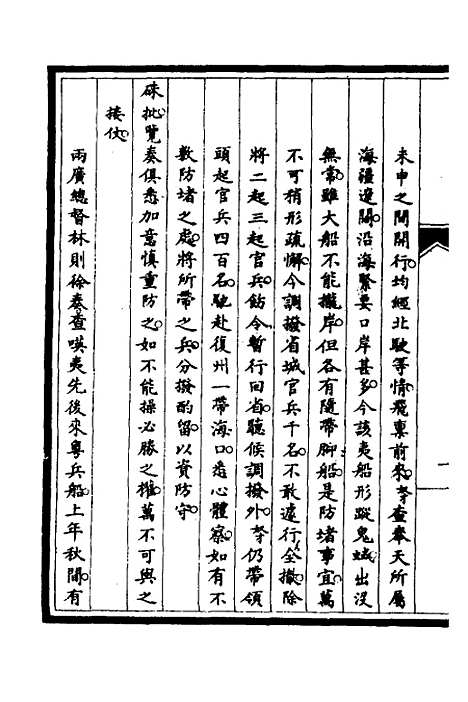 未申之間開行均經北駛等情飛稟前來孥查奉天所屬
海疆遼闊沿海緊要口岸甚多今該夷船形蹤鬼蜮出沒
無常雖大船不能攏岸但各有隨帶腳船是防堵事宜萬
不可稍形疏懈今調撥省城官兵千名不敢遽行全撤除
將二起三起官兵飭令暫行回省聽候調撥外孥仍帶領
頭起官兵四百名馳赴復州一帶海口悉心體察如有不
敷防堵之處將所帶之兵分撥酌留以資防守
硃批覽奏俱悉加意慎重防之如不能操必勝之權萬不可與之
接仗
兩廣總督林則徐奏查嘆夷先後來粵兵船上年秋間有
一